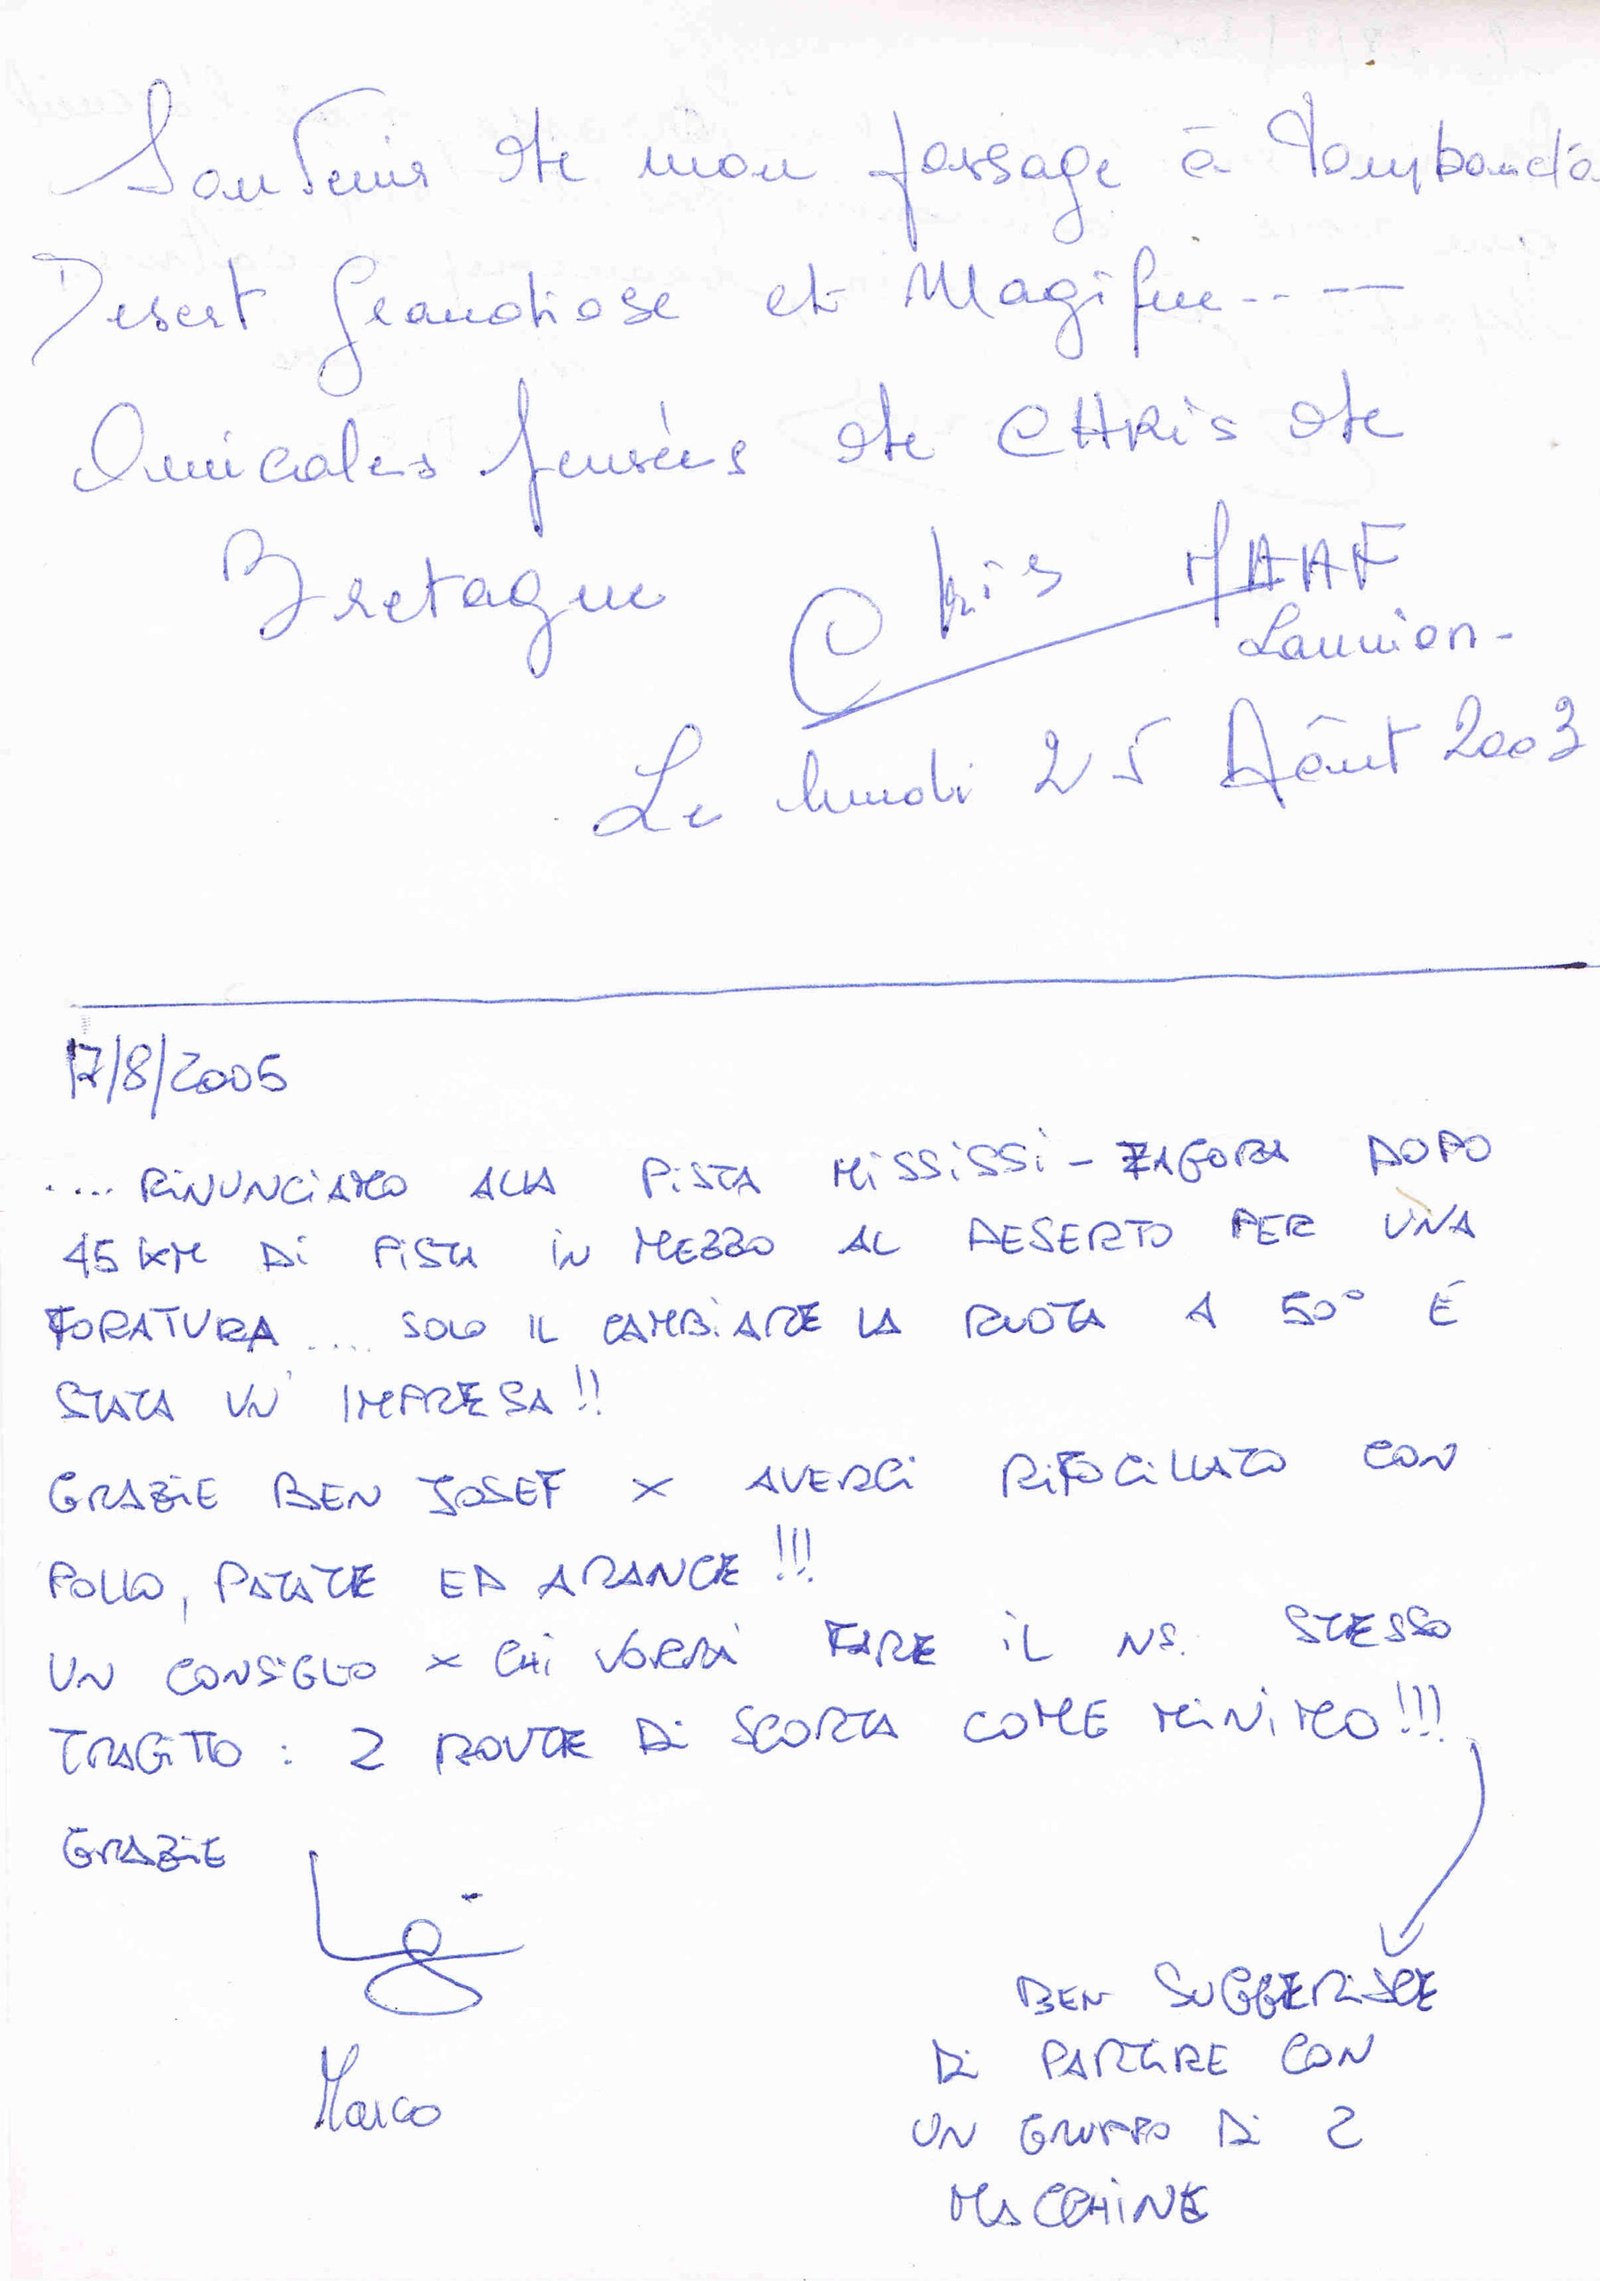 Souvenir de mon passage à
Desert Grandiose et Magifue-----
Amicales pensées de CHRis de
Bretagne Chris MAAF
Lannion-
Le lundi 25 Aôut 2003
17/8/2005
.... RINUNCIAMO ALLA PISTA MISSISSI-ZAGORA DOPO
45 KM DI PISTA IN MEZZO AL DESERTO PER UNA
FORATURA.... SOLO IL CAMBIARE LA RUOTA A 50° É
STATA UN' IMPRESA!!
GRAZIE BEN JOSEF X AVERCI RIFOCILLATO CON
POLLO, PATATE ED ARANCE!!!
UN CONSIGLIO X CHI VORRÀ FARE IL NS. STESSO
TRAGITTO: 2 ROUTE DI SCORTA COME MINIMO!!!
GRAZIE
Marco
BEN SUGGERISCE
DI PARTIRE CON
UN GRUPPO DI 2
MACCHINE